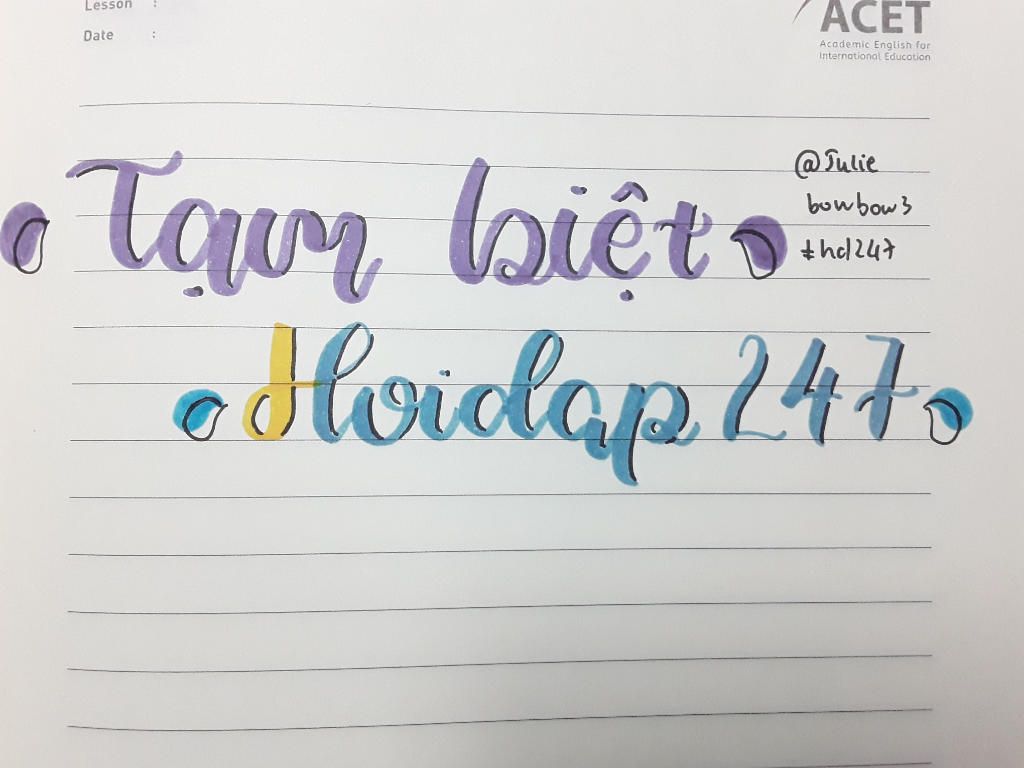 Lesson :
Date :
ACET
Academic English for
International Education
Tạm biệt
@Julie
bowbow3
#hd247
Hoidap 247